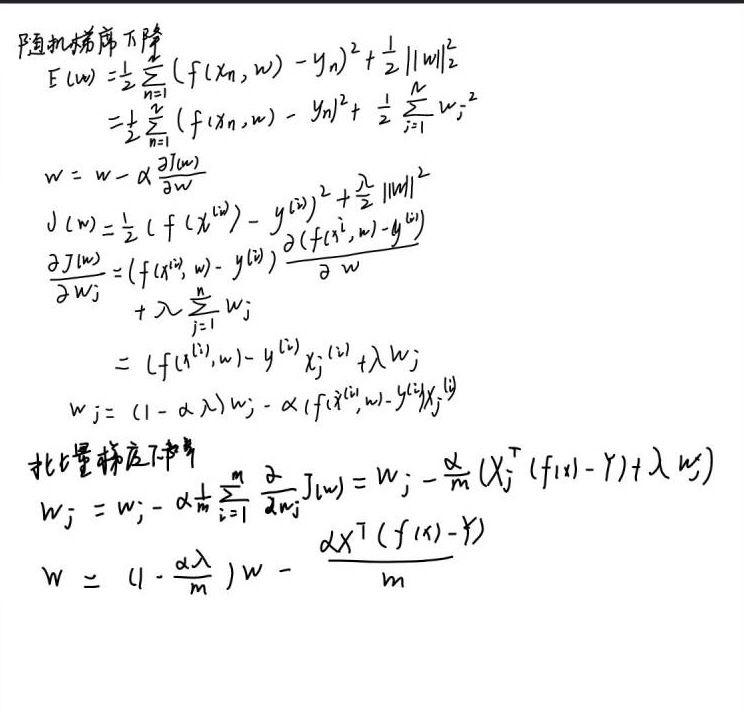 随机梯度下降
E(w) = 1/2 ∑_{n=1}^{N} (f(x_n, w) - y_n)² + 1/2 ||w||₂²
= 1/2 ∑_{n=1}^{N} (f(x_n, w) - y_n)² + 1/2 ∑_{j=1}^{N} w_j²
w = w - α ∂J(w)/∂w
J(w) = 1/2 (f(x^{(i)}) - y^{(i)})² + λ/2 ||w||²
∂J(w)/∂w_j = (f(x^{(i)}, w) - y^{(i)}) ∂(f(x^i, w) - y^{(i)})/∂w
+ λ ∑_{j=1}^{n} w_j
= (f(x^{(i)}, w) - y^{(i)} x_j^{(i)} + λw_j
w_j = (1 - αλ)w_j - α(f(x^{(i)}, w) - y^{(i)})x_j^{(i)}
批量梯度下降
w_j = w_j - α 1/m ∑_{i=1}^{m} ∂/∂w_j J(w) = w_j - α/m (X_j^T (f(x) - Y) + λw_j)
w = (1 - αλ/m)w - αX^T(f(x) - Y)/m